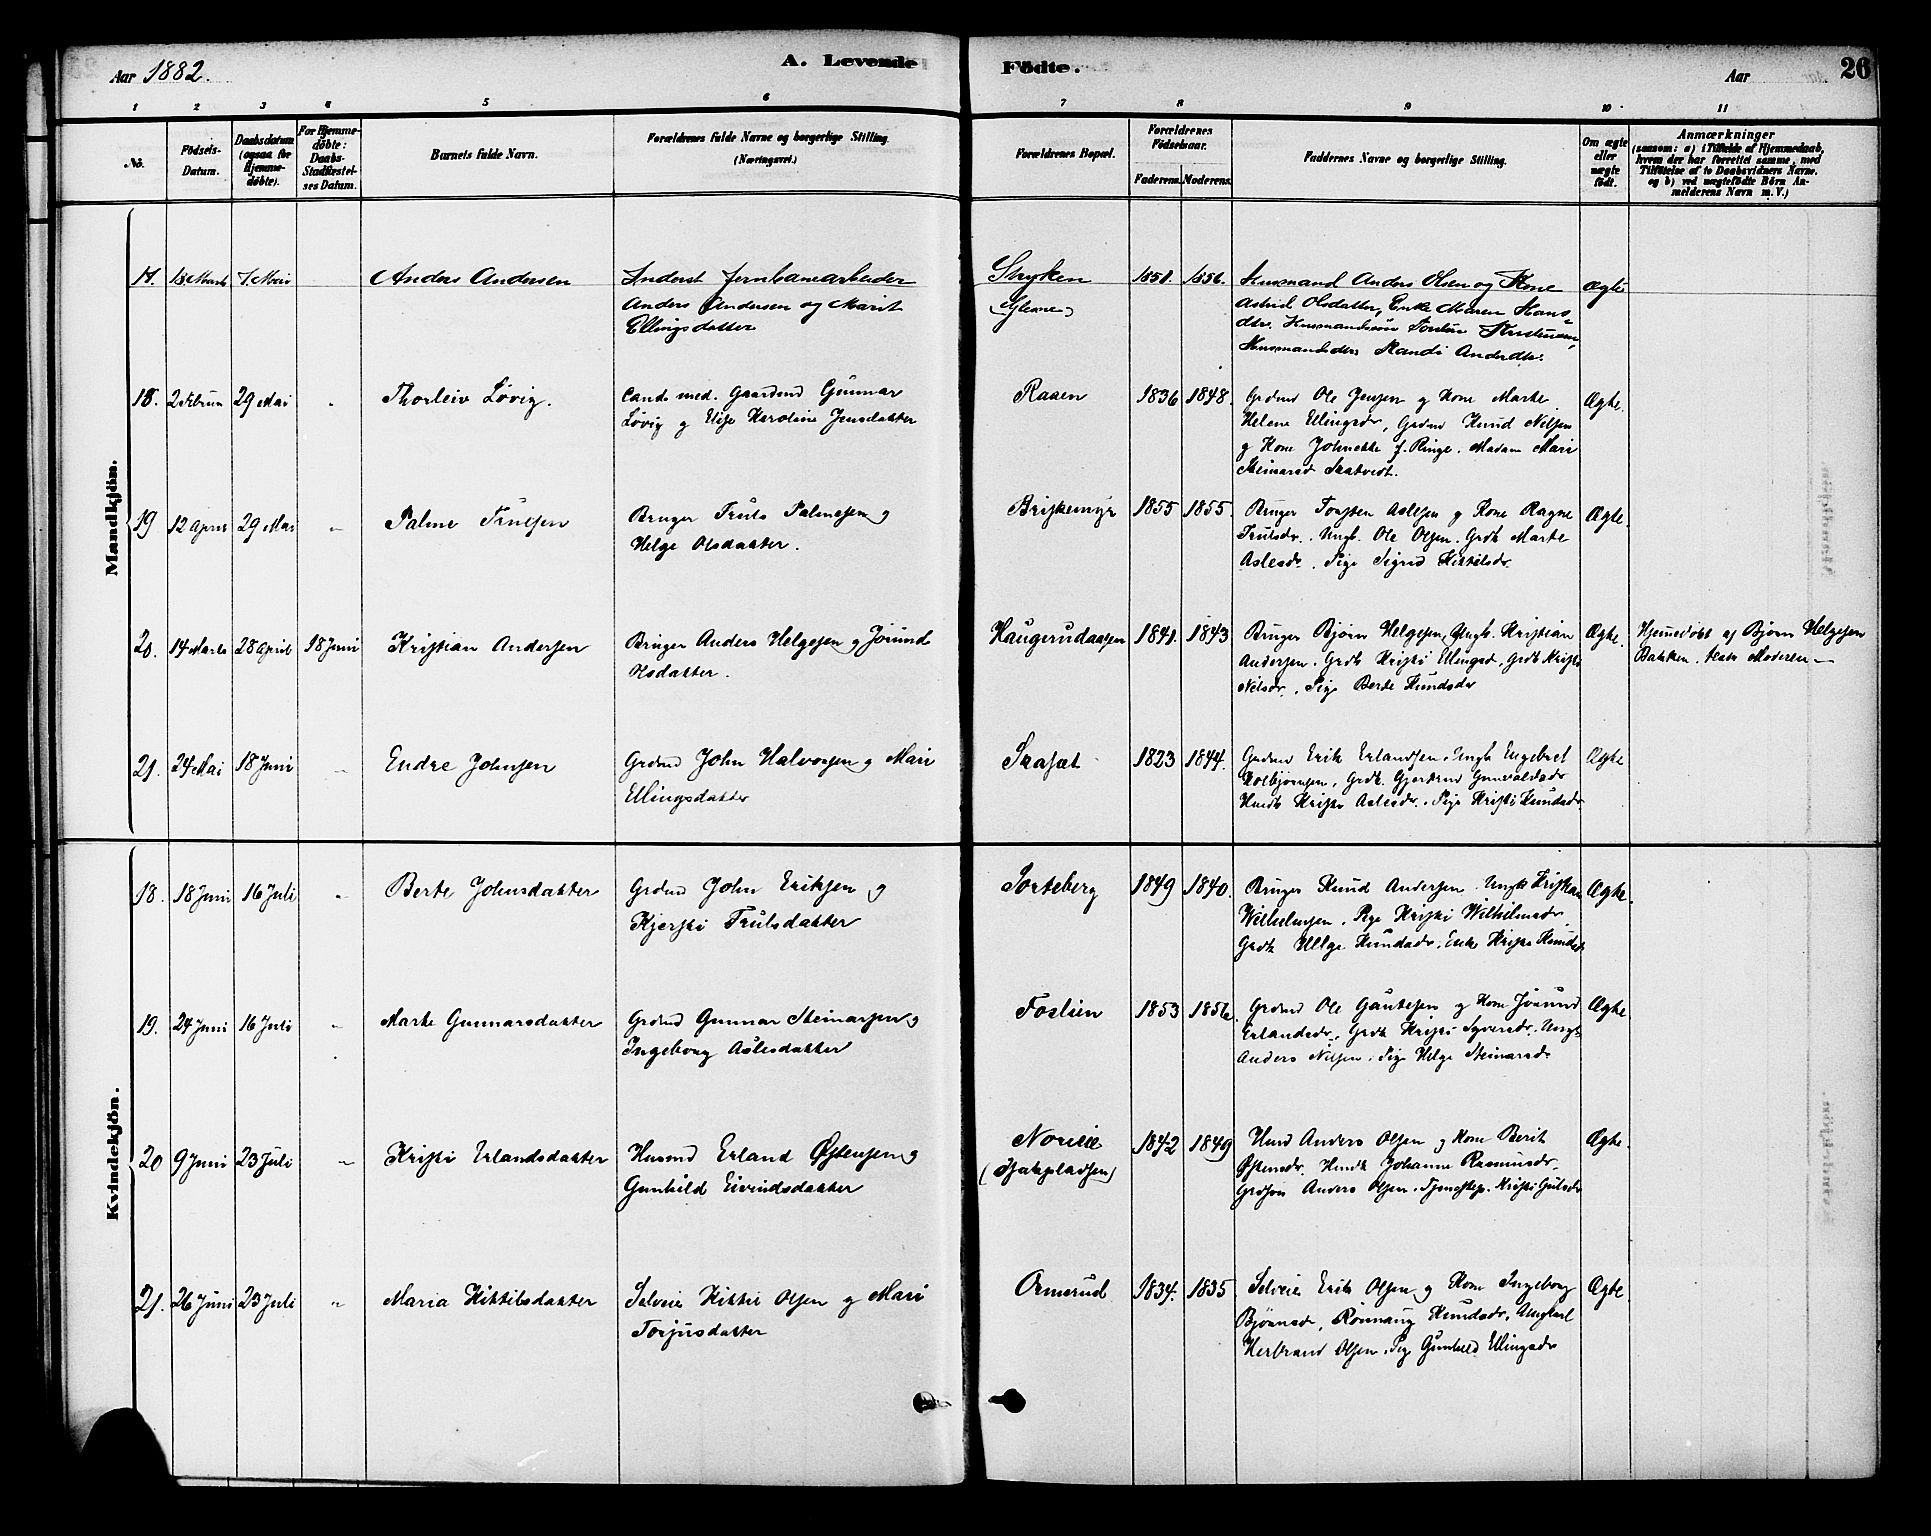 Aar 1882.
A. Levende Födte.
Aar
26
1 2 3 4 5 6 7 8 9 10 11
No.
Födsels-Datum.
Daabsdatum (ogsaa for Hjemme-döbte).
For Hjemme-döbte: Daabs-Stadfæstel-ses Datum.
Barnets fulde Navn.
Forældrenes fulde Navne og borgerlige Stilling. (Næringsvei.)
Forældrenes Bopæl.
Forældrenes Födselsaar.
Faderens. Moderens.
Faddernes Navne og borgerlige Stilling.
Om ægte eller uægte födt.
Anmærkninger
(saasom: a) i Tilfælde af Hjemmedaab, hvem der har forrettet samme, med Tilföielse af to Daabsvidners Navne. og b) ved uægtefödte Börn An-melderens Navn m. V.)
Mandkjön.
17. 18 Marts 7. Mai Anders Andersen Inderst Jernbanearbeider Stryken 1851. 1856. Husmand Anders Olsen og Kone Ægte
Anders Andersen og Marit (Glesne) Astrid Olsdatter, Enke Maren Hans
Ellingsdatter dtr. Husmandssön Kristensen,
Husmandsdtr Randi Andersdtr.
18. 2 Februar 29 Mai Thorleiv Lövig. Cand. med. Gaardmd Gunnar Raaen 1836 1848. Grdmd Ole Jensen og Kone Marte Ægte.
Lövig og Elise Karoline Jensdatter Helene Ellingsdr, Grdmd Knud Nilsen
og Kone Johnette f. Ringe. Madam Mari
Steinarsd Skatvedt.
19 12 April 29 Mai " Palme Trulsen Bruger Truls Palmesen og Briskemyr 1855 1855. Bruger Torsten Aslesen og Kone Ragne Ægte.
Helge Olsdatter. Trulsdr. Ungk. Ole Olsen. Grdk Marte
Aslesdr. Pige Sigrid Kittilsdr
20. 14 Marts 28 April 18 Juni Kristian Andersen Bruger Anders Helgesen og Jörund Haugerudaasen 1841. 1843 Bruger Björn Helgesen, Ungk. Kristian Ægte. Hjemmedöbt af Björn Helgesen
Olsdatter. Andersen. Grdk Kristi Ellingsd, Grdk Kristi Bakken. Moderen
Nilsdr. Pige Berte Knudsdr
21. 24 Mai 18 Juni " Endre Johnsen Grdmd John Halvorsen og Mari 1823 1844. Grdmd Erik Erlandsen. Ungk Engebret Ægte
Ellingsdatter Kolbjörnsen, Grdk. Gjertrud Gunvaldsdr
Kristi Aslesdr. Pige Kristi Knudsdr
Kvindekjön.
18. 18 Juni 16 Juli " Berte Johnsdatter Grdmd John Eriksen og Sorteberg 1849 1840. Bruger Knud Andersen. Ungk Kristian Ægte.
Kjersti Trulsdatter Wilhelmsen. Pige Kristi Wilhelmsdr.
Grdk Helge Knudsdr. Enke Kristi Knudsdr
19. 24 Juni 16 Juli " Marte Gunnarsdatter Grdmd Gunnar Steinarsen og Foslien 1853 1856. Grdmd Ole Gautesen og Kone Jörund Ægte.
Ingeborg Aslesdatter Erlandsdr, Grdk Kristi Syversdr. Ungk
Anders Nilsen. Pige Helge Steinarsdr
20 9 Juni 23 Juli " Kristi Erlandsdatter Husmd Erland Östensen og 1842 1849 Husmd Anders Olsen og Kone Berit Ægte.
Gunhild Eivindsdatter Östensdr. Johanne Rasmusdr.
Grdsön Anders Olsen. Kristi
21. 26 Juni 23 Juli " Maria Kittilsdatter Selveier Kittil Olsen og Mari Ormerud 1834. 1835 Selveier Erik Olsen og Kone Ingeborg Ægte.
Torjusdatter Björnsdr, Rönnaug Knudsdr, Ungkarl
Herbrand Olsen. Pige Gunhild Ellingsdr